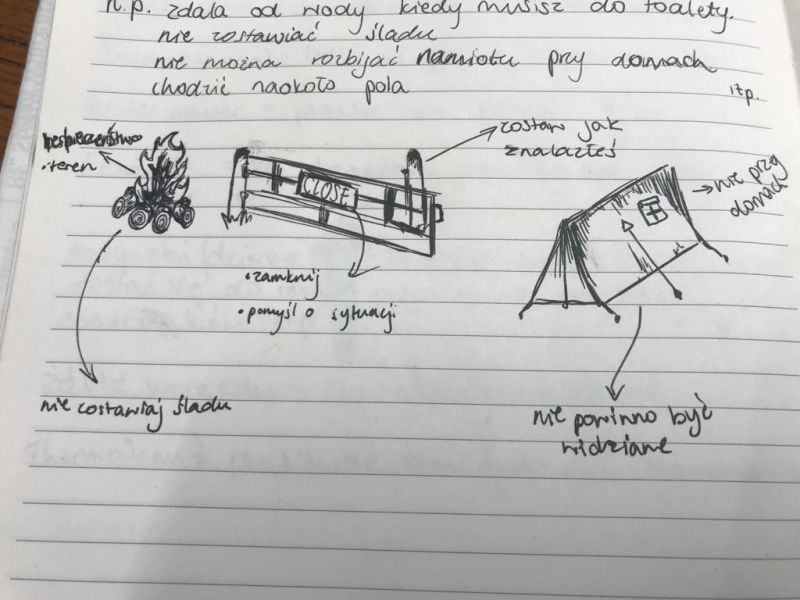 n.p. zdala od wody kiedy musisz do toalety.
nie zostawiać śladu
nie można rozbijać namiotu przy domach
chodzić naokoło pola
itp.
bespieczeństwo
• teren
CLOSE
zostaw jak
znalazłeś
→ nie przy
domach
• zamknij
• pomyśl o sytuacji
nie zostawiaj śladu
nie powinno być
widziane